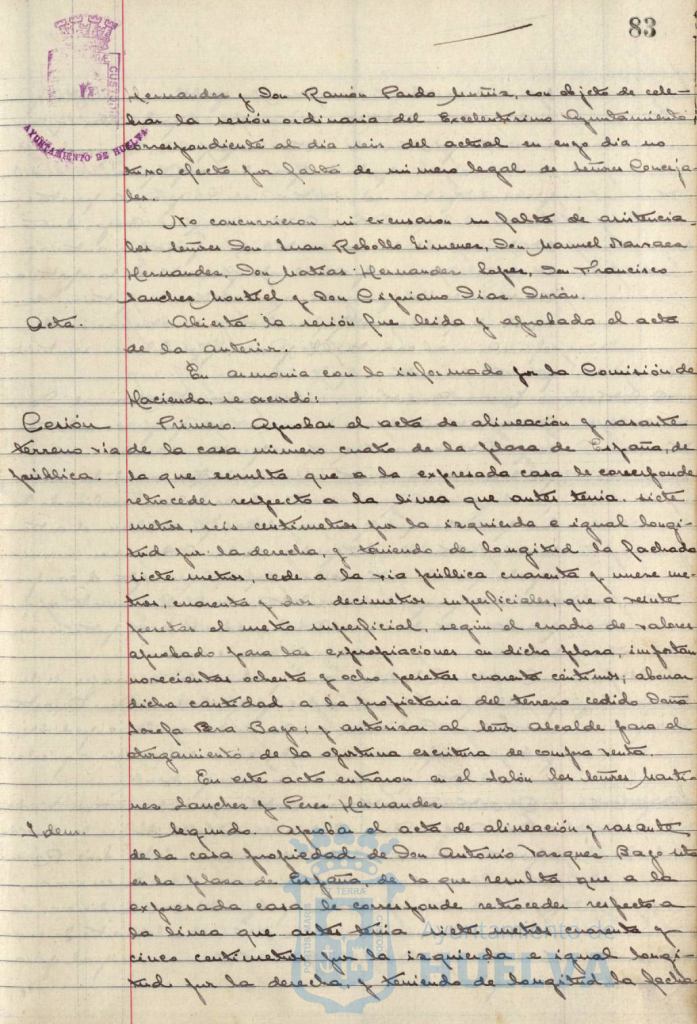 83
CUSTODIA
AYUNTAMIENTO DE HUELVA
Hernandez y Don Ramón Pardo Muñiz, con objeto de cele-
brar la sesión ordinaria del Excelentísimo Ayuntamiento
correspondiente al dia seis del actual en cuyo dia no
tuvo efecto por falta de número legal de señores Conceja-
les.
No concurrieron ni excusaron su falta de asistencia
los señores Don Juan Rebollo Jimenez, Don Manuel Narvaez
Hernandez, Don Matias Hernandez Lopez, Don Francisco
Sanchez Montiel y Don Cipriano Diaz Durán.
Acta.
Abierta la sesión fue leida y aprobada el acta
de la anterior.
En armonia con lo informado por la Comisión de
Hacienda, se acordó:
Cesión
terreno via
pública.
Primero. Aprobar el acta de alineación y rasante
de la casa número cuatro de la plaza de España, de
la que resulta que a la expresada casa le corresponde
retroceder respecto a la linea que antes tenia, siete
metros, seis centimetros por la izquierda e igual longi-
tud por la derecha, y teniendo de longitud la fachada
siete metros, cede a la via pública cuarenta y nueve me-
tros, cuarenta y dos decimetros superficiales, que a veinte
pesetas el metro superficial, según el cuadro de valores
aprobado para las expropiaciones en dicha plaza, importan
novecientas ochenta y ocho pesetas cuarenta céntimos; abonar
dicha cantidad a la propietaria del terreno cedido Doña
Josefa Bazo; y autorizar al señor Alcalde para el
otorgamiento de la oportuna escritura de compra venta
En este acto entraron en el salón los señores Marti-
nez Sanchez y Perez Hernandez
Idem.
Segundo. Aprobar el acta de alineación y rasante
de la casa propiedad de Don Antonio Vazquez Bazo sita
en la plaza de España, de la que resulta que a la
expresada casa le corresponde retroceder respecto a
la linea que antes tenia siete metros cuarenta y
cinco centimetros por la izquierda e igual longi-
tud por la derecha, y teniendo de longitud la facha-
Ayuntamiento de
HUELVA